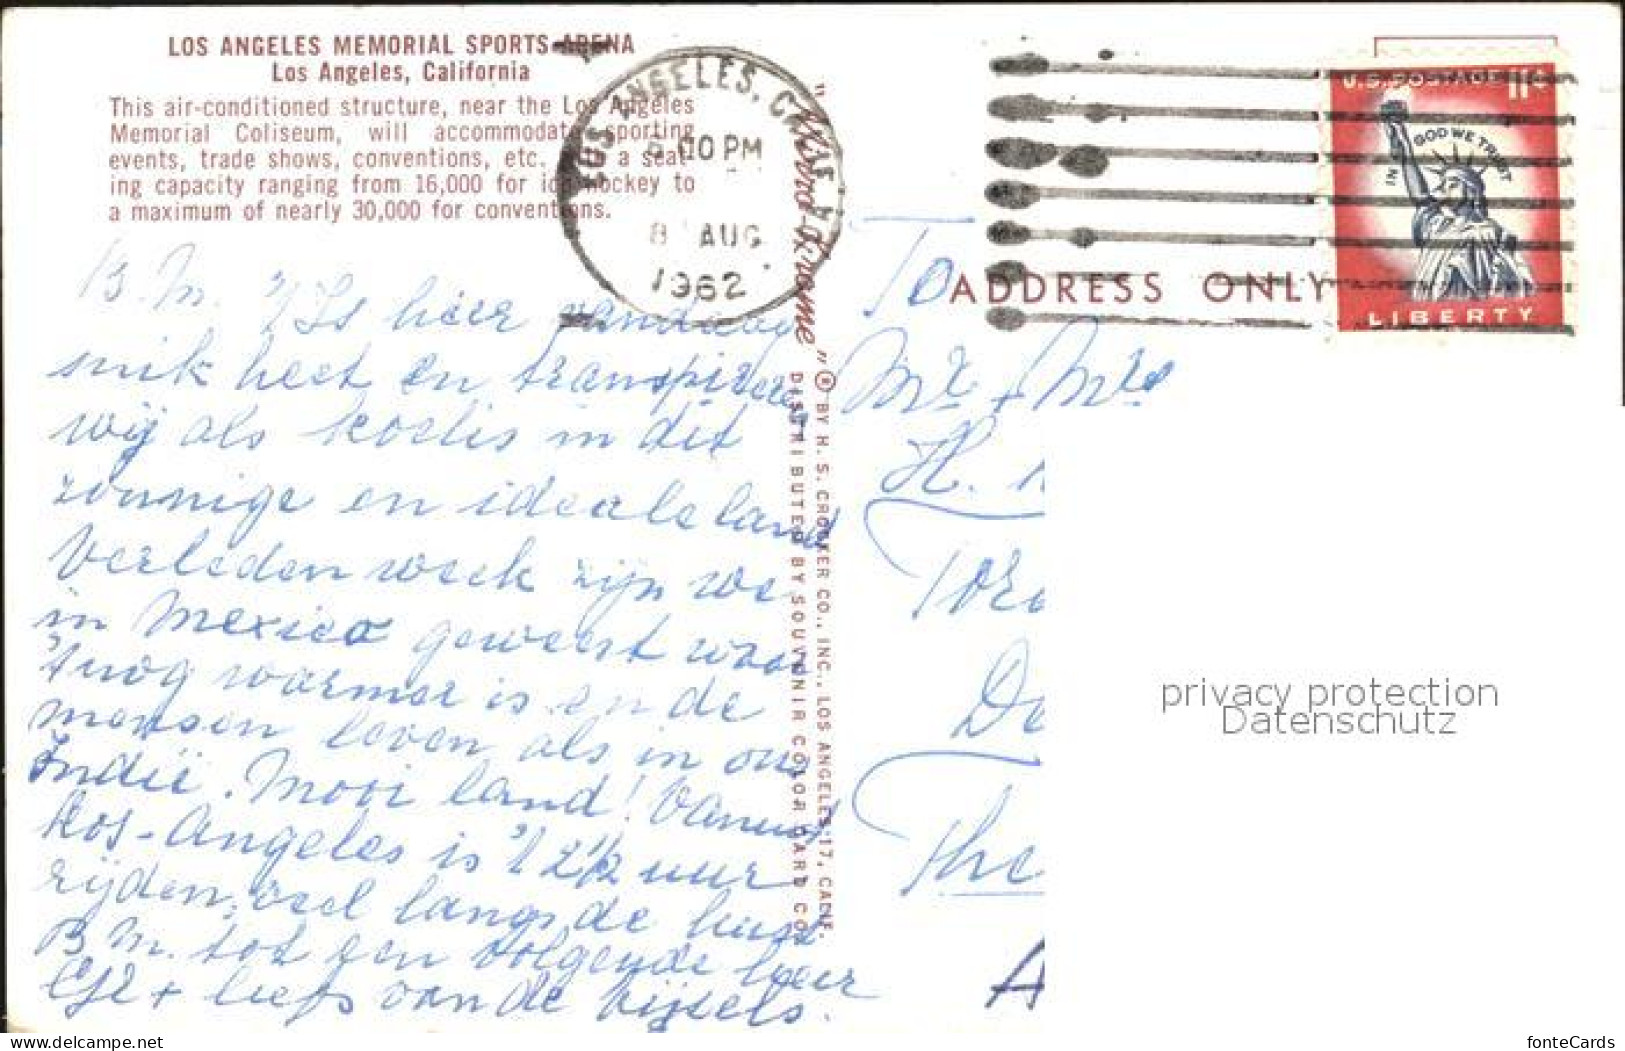 LOS ANGELES MEMORIAL SPORTS ARENA
Los Angeles, California
This air-conditioned structure, near the Los Angeles
Memorial Coliseum, will accommodate sporting
events, trade shows, conventions, etc. a seat-
ing capacity ranging from 16,000 for ice hockey to
a maximum of nearly 30,000 for conventions.
LOS ANGELES, CALIF.
00 PM
8 AUG
1962
U.S. POSTAGE 11¢
IN GOD WE TRUST
LIBERTY
ADDRESS ONLY
"Mirro-Krome" ® BY H. S. CROCKER CO., INC., LOS ANGELES 17, CALIF.
DISTRIBUTED BY SOUVENIR COLOR CARD CO.
B.M. 't Is hier vandaag
snik heet en transpireren
wij als koelis in dit
zonnige en ideale land
Verleden week zijn we
in Mexico geweest waar
't nog warmer is en de
mensen leven als in ons
Indië. Mooi land! Vanuit
Los-Angeles is 't 2½ uur
rijden, veel langs de kust
B.M. tot een volgende keer
+ liefs van de
To
Mr + Mrs
H.
The
privacy protection
Datenschutz
www.delcampe.net
fonteCards